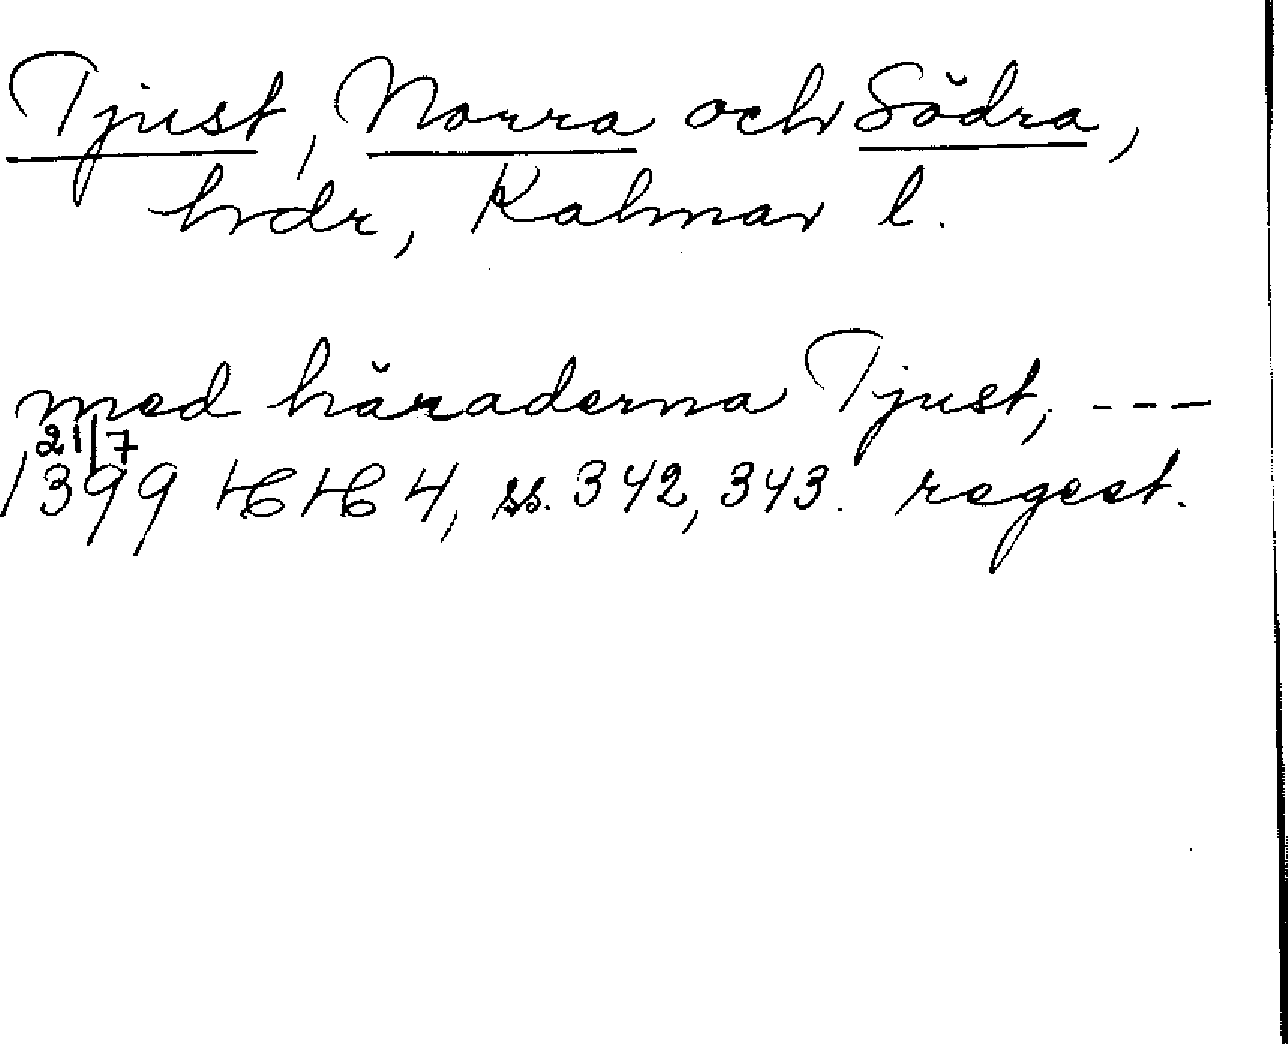 Tjust, Norra och Södra,
hrdr, Kalmar l.
med häraderna Tjust, ---
21/7
1399 HH 4, ss. 342, 343. regest.